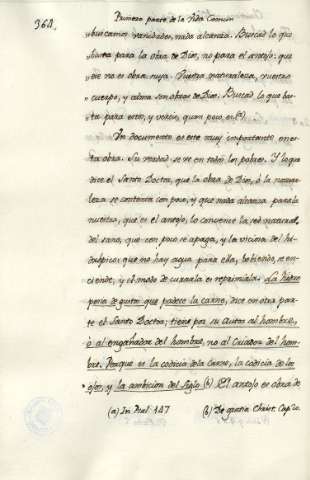 364.
Primera parte de la Vida Comun
buscamos vanidades, nada alcanza. Buscad lo que
basta para la obra de Dios, no para el antojo: que
este no es obra suya. Vuestra naturaleza, vuestro
cuerpo, y alma son obras de Dios. Buscad lo que bas-
ta para esto, y vereis, quan poco es. (a)
Un documento es este muy importante en es-
ta obra. Su verdad se ve en todos los pobres. Y lo que
dice el Santo Doctor, que la obra de Dios, ò la natura-
leza se contenta con poco, y que nada alcanza para la
nuestra, que es el antojo, lo convence la sed natural
del sano, que con poco se apaga, y la viciosa del hi-
dropico; que no hay agua para ella, bebiendo, se en-
ciende, y el modo de curarla es reprimirla. La hidro-
pesia de gustos que padece la carne, dice en otra par-
te el Santo Doctor; tiene por su Autor al hombre,
ò al engañador del hombre, no al Criador del hom-
bre. Porque es la codicia de la carne, la codicia de los
ojos, y la ambicion del siglo (b) El antojo es obra de
(a) In Psal. 147 (b) De gratia Christ. Cap. 20.